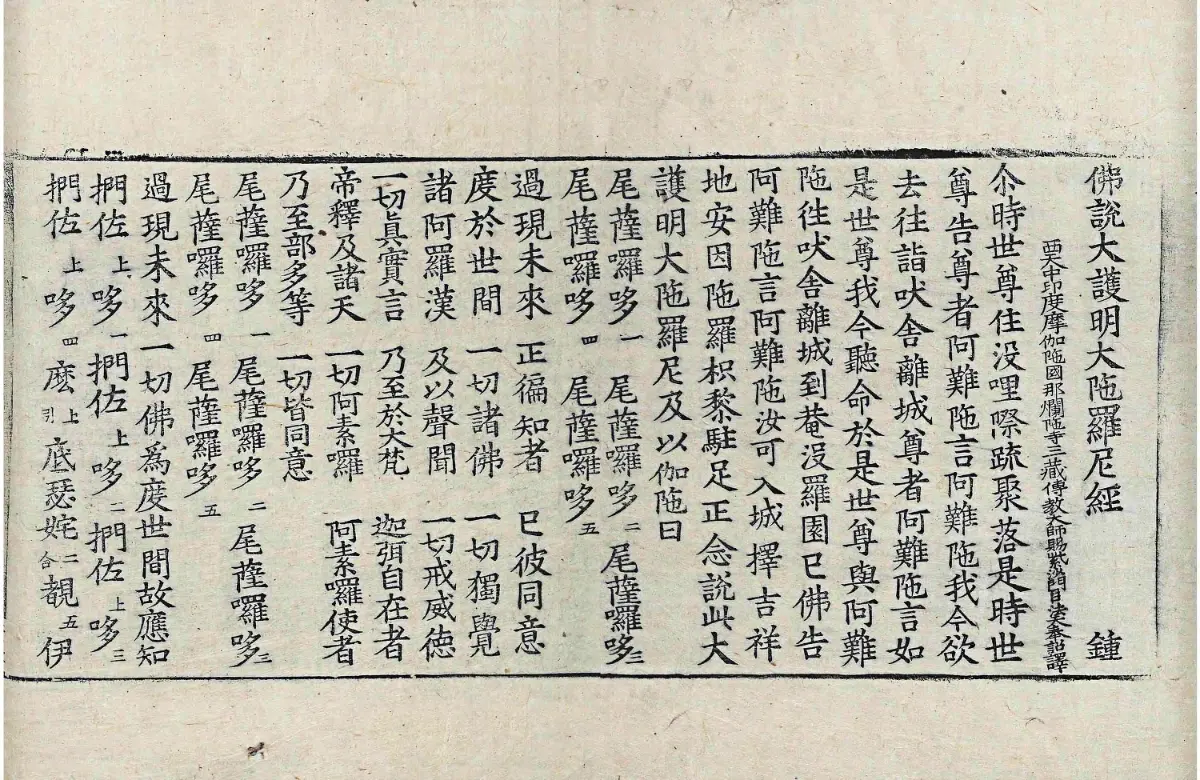 佛說大護明大陁羅尼經 鍾
西天中印度摩伽陁國那爛陁寺三藏傳教大師賜紫沙門臣法天奉詔譯
尒時世尊住没哩際踈聚落是時世
尊告尊者阿難陁言阿難陁我今欲
去往詣吠舍離城尊者阿難陁言如
是世尊我今聽命於是世尊與阿難
陁徃吠舍離城到菴没羅園巳佛告
阿難陁言阿難陁汝可入城擇吉祥
地安因陁羅枳黎駐足正念說此大
護明大陁羅尼及以伽陁曰
尾薩囉哆 一 尾薩囉哆 二 尾薩囉哆 三
尾薩囉哆 四 尾薩囉哆 五
過現未來 正徧知者 巳彼同意
度於世間 一切諸佛 一切獨覺
諸阿羅漢 及以聲聞 一切戒威德
一切眞實言 乃至於大梵 迦弭自在者
帝釋及諸天 一切阿素囉 阿素囉使者
乃至部多等 一切皆同意
尾薩囉哆 一 尾薩囉哆 二 尾薩囉哆 三
尾薩囉哆 四 尾薩囉哆 五
過現未來一切佛為度世間故應知
捫佐 上 哆 一 捫佐 上 哆 二 捫佐 上 哆 三
捫佐 上 哆 四 麽 上 引 底瑟姹 二 合 覩 五 伊